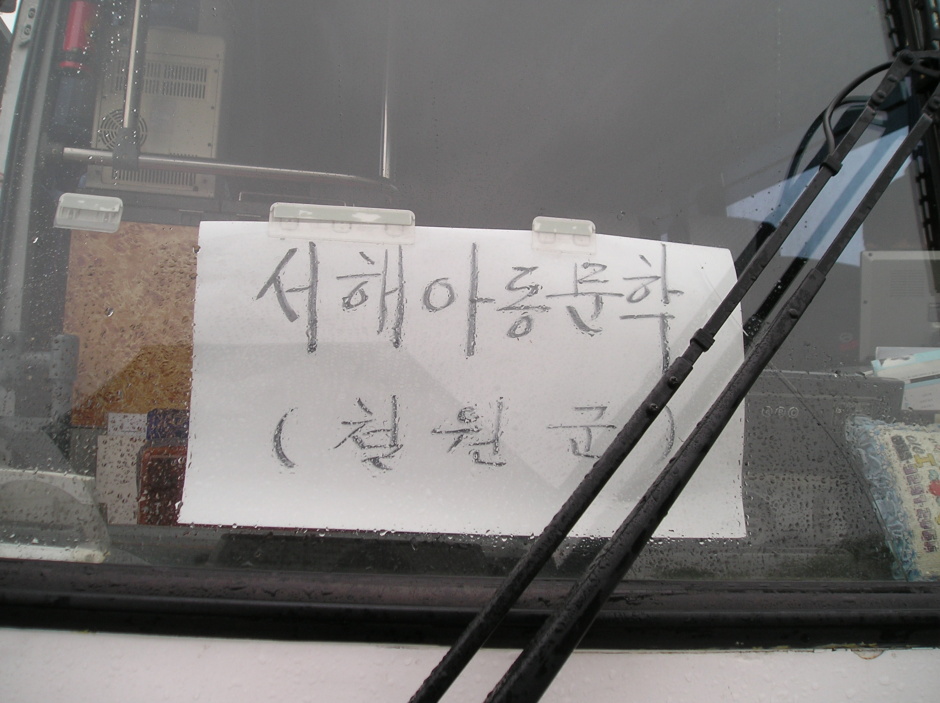 서해아동문학
(철원군)